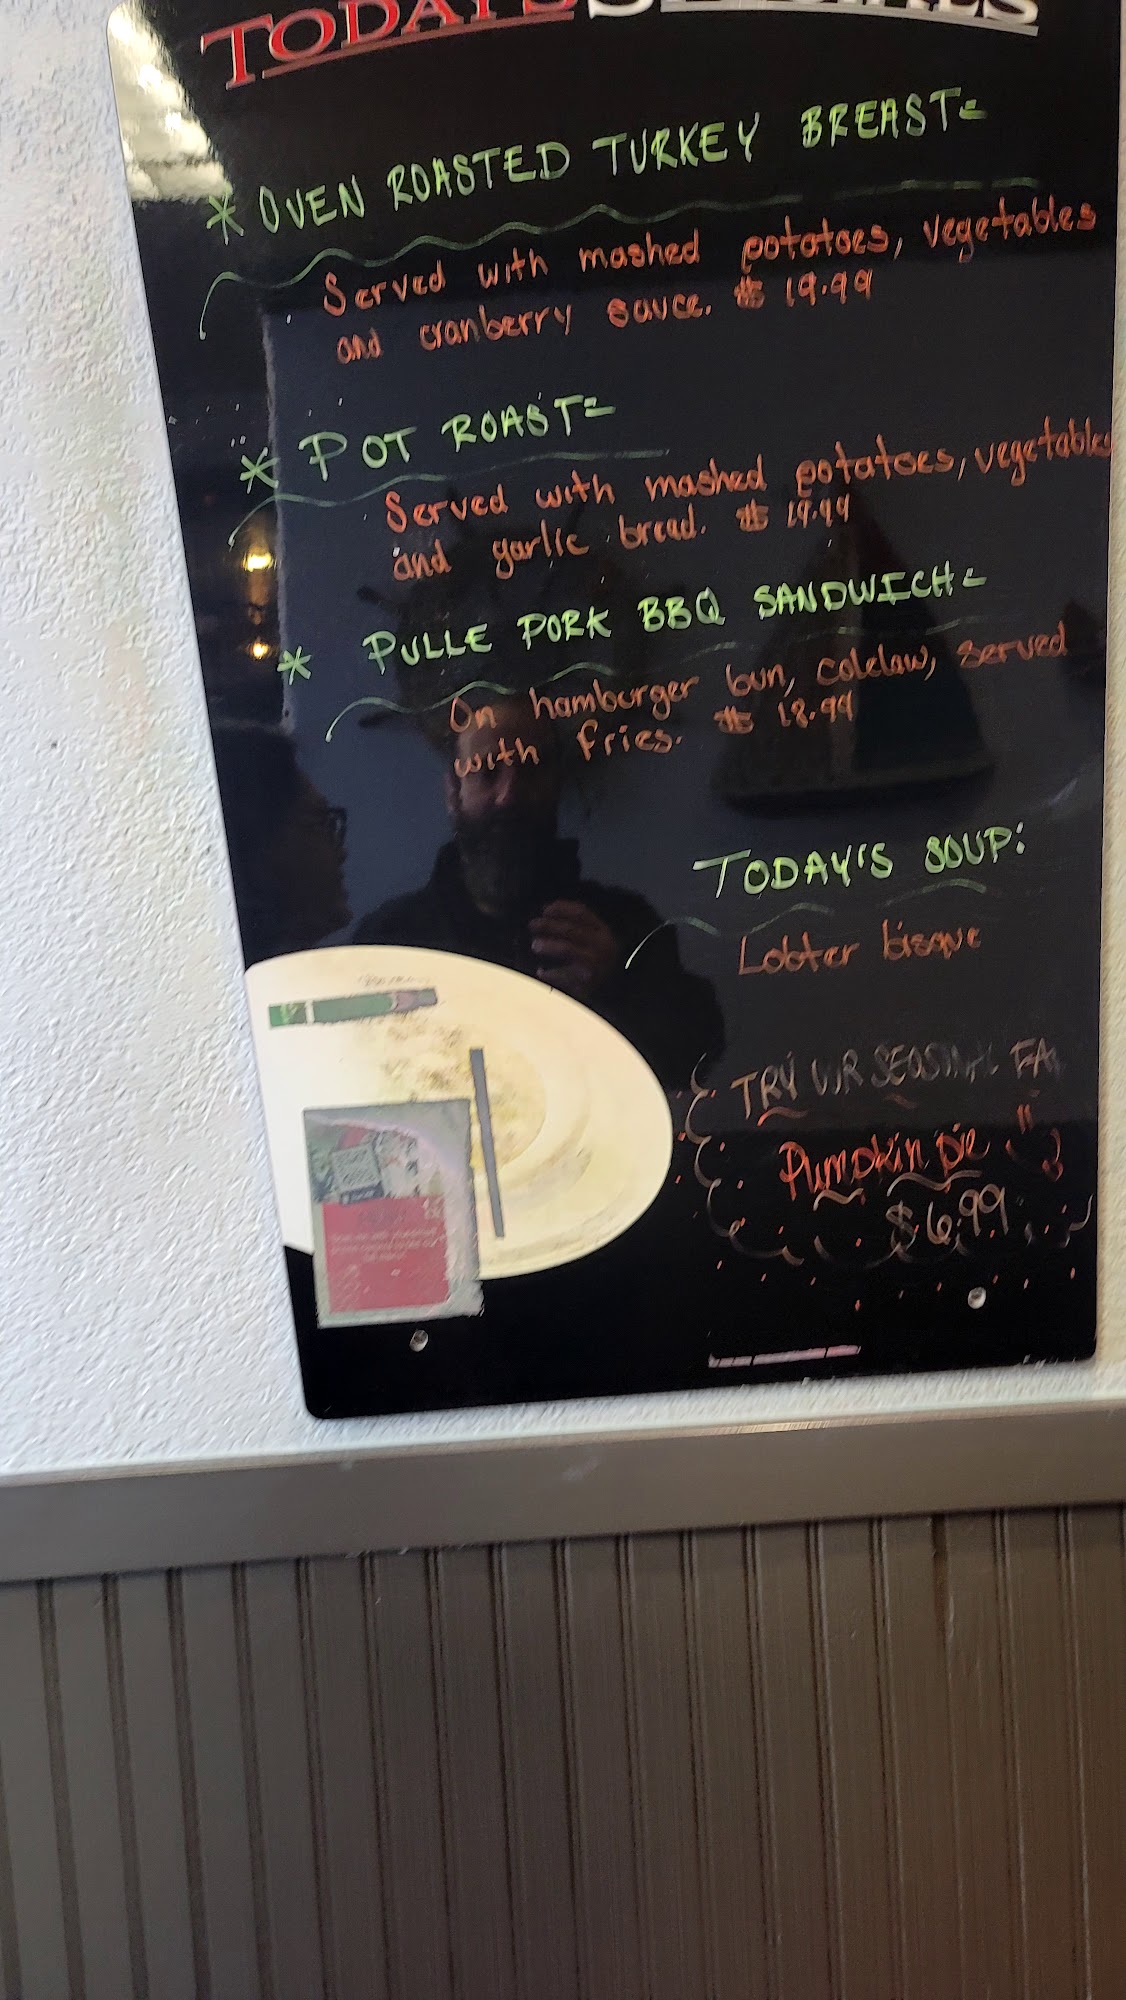 TODAY'S SPECIALS
* OVEN ROASTED TURKEY BREAST=
Served with mashed potatoes, vegetables
and cranberry sauce. $ 19.99
* POT ROAST=
Served with mashed potatoes, vegetables
and garlic bread. $ 19.99
* PULLE PORK BBQ SANDWICH=
On hamburger bun, coleslaw, served
with fries. $ 18.99
TODAY'S SOUP:
Lobter bisque
TRY
Pumpkin pie
$6.99